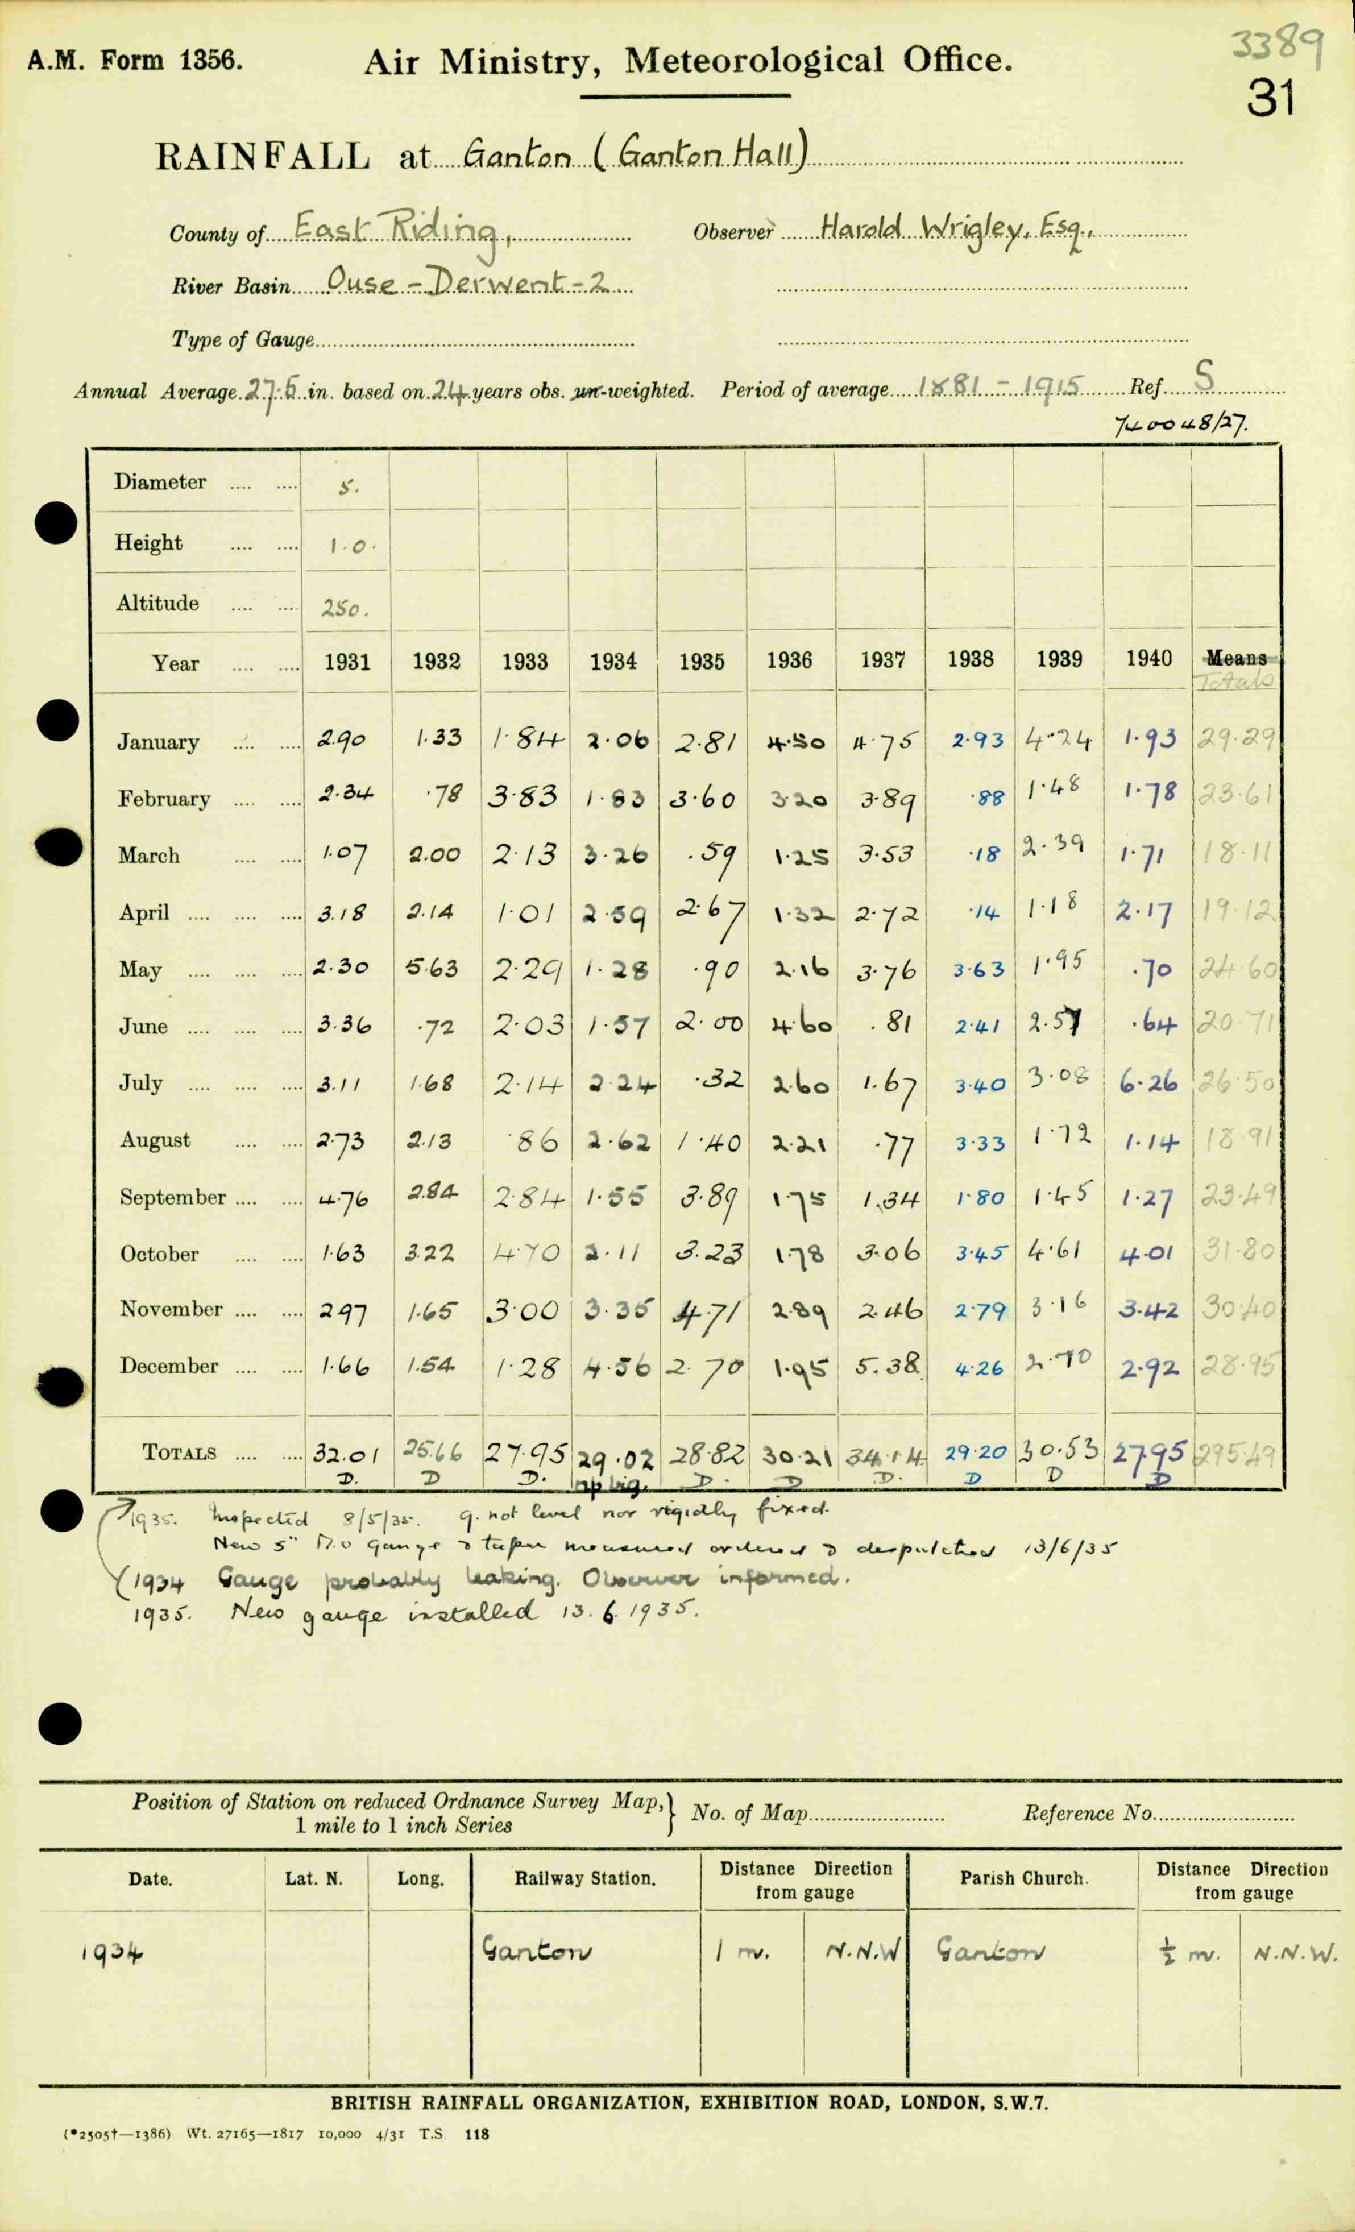 3389
A.M. Form 1356. Air Ministry, Meteorological Office.
31
RAINFALL at Ganton (Ganton Hall)
County of East Riding, Observer Harold Wrigley, Esq.,
River Basin Ouse - Derwent - 2
Type of Gauge
Annual Average 27.5 in. based on 24 years obs. un-weighted. Period of average 1881 - 1915 Ref. S
740048/27.
Diameter 5.
Height 1.0.
Altitude 250.
Year 1931 1932 1933 1934 1935 1936 1937 1938 1939 1940 Means
Totals
January 2.90 1.33 1.84 2.06 2.81 4.50 4.75 2.93 4.24 1.93 29.29
February 2.34 .78 3.83 1.83 3.60 3.20 3.89 .88 1.48 1.78 23.61
March 1.07 2.00 2.13 3.26 .59 1.25 3.53 .18 2.39 1.71 18.11
April 3.18 2.14 1.01 2.59 2.67 1.32 2.72 .14 1.18 2.17 19.12
May 2.30 5.63 2.29 1.28 .90 2.16 3.76 3.63 1.95 .70 24.60
June 3.36 .72 2.03 1.57 2.00 4.60 .81 2.41 2.57 .64 20.71
July 3.11 1.68 2.14 2.24 .32 2.60 1.67 3.40 3.08 6.26 26.50
August 2.73 2.13 .86 2.62 1.40 2.21 .77 3.33 1.72 1.14 18.91
September 4.76 2.84 2.84 1.55 3.89 1.75 1.34 1.80 1.45 1.27 23.49
October 1.63 3.22 4.70 2.11 3.23 1.78 3.06 3.45 4.61 4.01 31.80
November 2.97 1.65 3.00 3.35 4.71 2.89 2.46 2.79 3.16 3.42 30.40
December 1.66 1.54 1.28 4.56 2.70 1.95 5.38 4.26 2.70 2.92 28.95
TOTALS 32.01 25.66 27.95 29.02 28.82 30.21 34.14 29.20 30.53 27.95 295.49
D. D D. D. D D. D D D
1935. Inspected 8/5/35. g. not level nor rigidly fixed.
New 5" M.O gauge & taper measure ordered & despatched 13/6/35
(1934 Gauge probably leaking. Observer informed.
1935. New gauge installed 13.6.1935.
Position of Station on reduced Ordnance Survey Map, 1 mile to 1 inch Series } No. of Map Reference No.
Date. Lat. N. Long. Railway Station. Distance Direction from gauge Parish Church. Distance Direction from gauge
1934 Ganton 1 m. N.N.W Ganton ½ m. N.N.W.
BRITISH RAINFALL ORGANIZATION, EXHIBITION ROAD, LONDON, S.W.7.
(*2505†—1386) Wt. 27165—1817 10,000 4/31 T.S 118